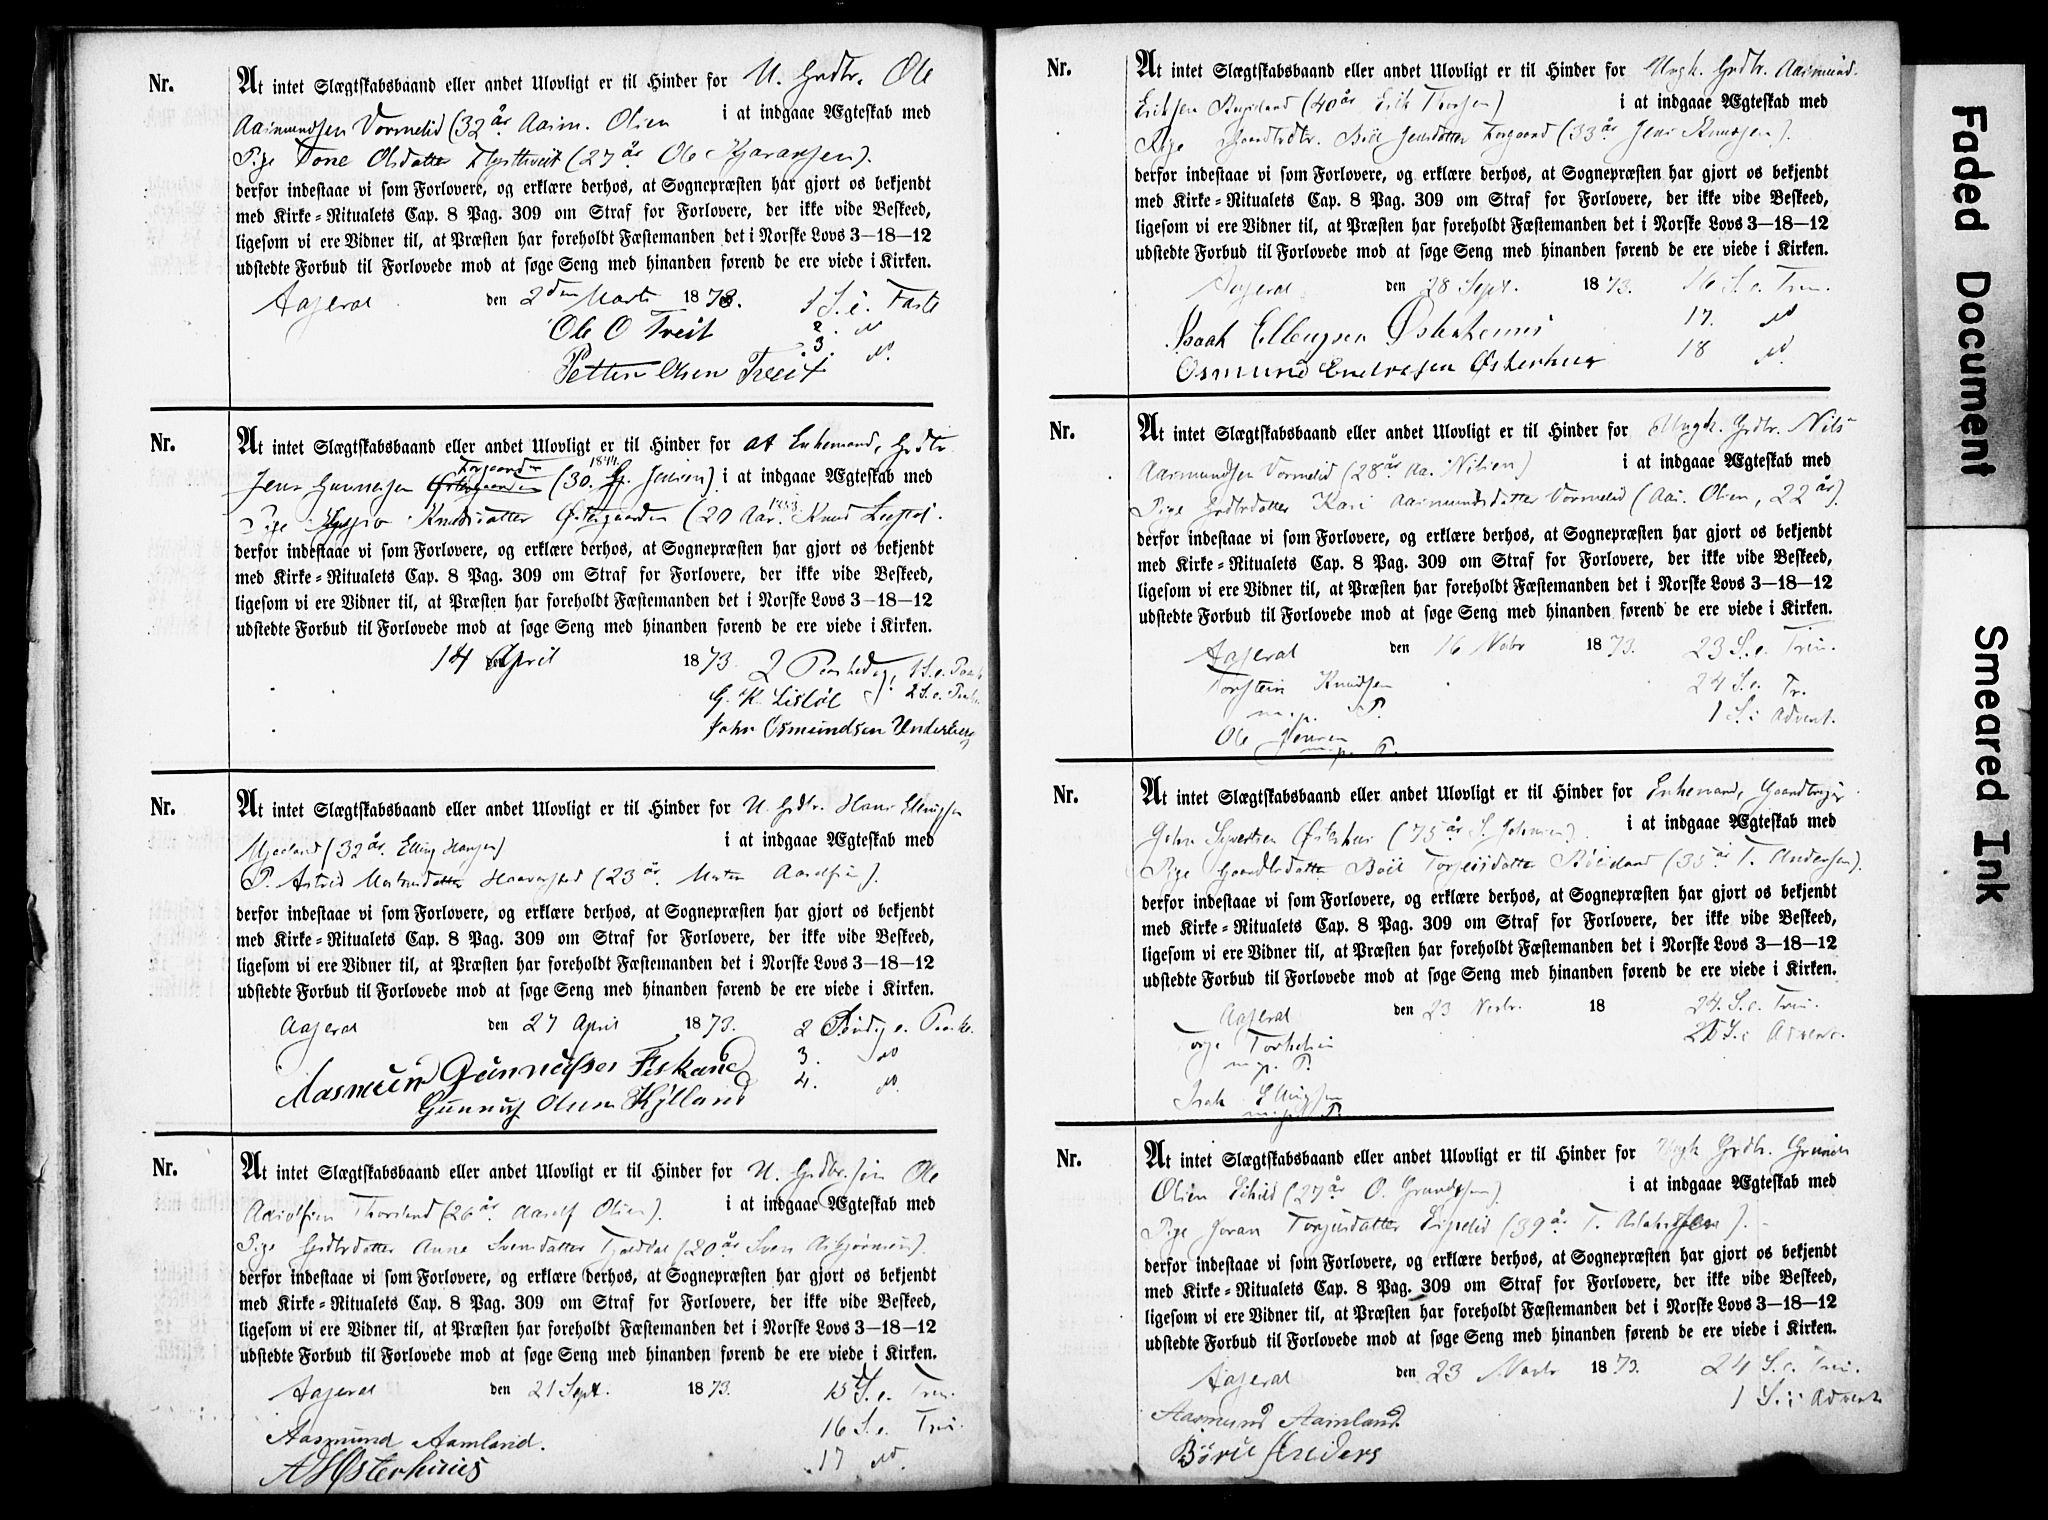 Nr. At intet Slægtskabsbaand eller andet Ulovligt er til Hinder for U. Grdbr. Ole
Aasmundsen Vormelid (32 år Aasm. Olsen i at indgaae Ægteskab med
Pige Tone Olsdatter (27 år Ole).
derfor indestaae vi som Forlovere, og erklære derhos, at Sognepræsten har gjort os bekjendt
med Kirke-Ritualets Cap. 8 Pag. 309 om Straf for Forlovere, der ikke vide Beskeed,
ligesom vi ere Vidner til, at Præsten har foreholdt Fæstemanden det i Norske Lovs 3—18—12
udstedte Forbud til Forlovede mod at søge Seng med hinanden førend de ere viede i Kirken.
Aaseral den 2den Marts 1873. 1 S. i Faste
Ole O Treit 2.
3.
Petter Olsen Treit
Nr. At intet Slægtskabsbaand eller andet Ulovligt er til Hinder for at Enkemand, Grdbr.
Jens Gunnersen (30. Jensen) i at indgaae Ægteskab med
1844.
Pige Knudsdatter Østergaarden (20 Aar. Knud
1853
derfor indestaae vi som Forlovere, og erklære derhos, at Sognepræsten har gjort os bekjendt
med Kirke-Ritualets Cap. 8 Pag. 309 om Straf for Forlovere, der ikke vide Beskeed,
ligesom vi ere Vidner til, at Præsten har foreholdt Fæstemanden det i Norske Lovs 3—18—12
udstedte Forbud til Forlovede mod at søge Seng med hinanden førend de ere viede i Kirken.
14 April 1873. 2 Paaskedag, 1 S. e. Paaske
G. K. Lisløl 2 S. e. Paaske
John Osmundsen Underberg
Nr. At intet Slægtskabsbaand eller andet Ulovligt er til Hinder for U. Grdbr. Hans Ellingsen
Mjaaland (32 år. Elling Hansen) i at indgaae Ægteskab med
P. Astrid Mortensdatter Haaverstad (23 år. Morten).
derfor indestaae vi som Forlovere, og erklære derhos, at Sognepræsten har gjort os bekjendt
med Kirke-Ritualets Cap. 8 Pag. 309 om Straf for Forlovere, der ikke vide Beskeed,
ligesom vi ere Vidner til, at Præsten har foreholdt Fæstemanden det i Norske Lovs 3—18—12
udstedte Forbud til Forlovede mod at søge Seng med hinanden førend de ere viede i Kirken.
Aaseral den 27 April 1873. 2 Søndag e. Paaske.
Aasmund Gunnufsen Fiskaue 3.
Gunnuf Olsen Kylland 4.
Nr. At intet Slægtskabsbaand eller andet Ulovligt er til Hinder for U. Grdbr. søn Ole
Thorsland (26 år Olsen). i at indgaae Ægteskab med
Pige Grdbrdatter Anne Svensdatter (20 år Sven Asbjørnsen).
derfor indestaae vi som Forlovere, og erklære derhos, at Sognepræsten har gjort os bekjendt
med Kirke-Ritualets Cap. 8 Pag. 309 om Straf for Forlovere, der ikke vide Beskeed,
ligesom vi ere Vidner til, at Præsten har foreholdt Fæstemanden det i Norske Lovs 3—18—12
udstedte Forbud til Forlovede mod at søge Seng med hinanden førend de ere viede i Kirken.
Aaseral den 21 Sept. 1873. 15 S. e. Trin.
16 S. e. Trin.
Aasmund Aamland. 17
A Østerhuus
Nr. At intet Slægtskabsbaand eller andet Ulovligt er til Hinder for Ungk. Grdbr. Aasmund
Eriksen (40 år Erik) i at indgaae Ægteskab med
Pige Gaardbrdtr. Jensdatter (33 år Jens Knudsen).
derfor indestaae vi som Forlovere, og erklære derhos, at Sognepræsten har gjort os bekjendt
med Kirke-Ritualets Cap. 8 Pag. 309 om Straf for Forlovere, der ikke vide Beskeed,
ligesom vi ere Vidner til, at Præsten har foreholdt Fæstemanden det i Norske Lovs 3—18—12
udstedte Forbud til Forlovede mod at søge Seng med hinanden førend de ere viede i Kirken.
Aaseral den 28 Sept. 1873. 16 S. e. Trin.
Isaak Ellengsen 17.
Osmund Endresen Østerhus 18
Nr. At intet Slægtskabsbaand eller andet Ulovligt er til Hinder for Ungk. Grdbr. Nils
Aasmundsen Vormelid (28 år Aa. Nilsen) i at indgaae Ægteskab med
Pige Grdbrdatter Kari Aasmundsdatter Vormelid (Aas. Olsen, 22 år).
derfor indestaae vi som Forlovere, og erklære derhos, at Sognepræsten har gjort os bekjendt
med Kirke-Ritualets Cap. 8 Pag. 309 om Straf for Forlovere, der ikke vide Beskeed,
ligesom vi ere Vidner til, at Præsten har foreholdt Fæstemanden det i Norske Lovs 3—18—12
udstedte Forbud til Forlovede mod at søge Seng med hinanden førend de ere viede i Kirken.
Aaseral den 16 Novbr 1873. 23 S. e. Trin.
Torstein Knudsen 24 S. e. Tr.
m. p. P. 1 S. i Advent.
Ole Jensen
m. p. P.
Nr. At intet Slægtskabsbaand eller andet Ulovligt er til Hinder for Enkemand, Gaardbruger
Syvertsen Østerhus (75 år S.). i at indgaae Ægteskab med
Pige Gaardbrdatter Torjeisdatter (35 år T. Andersen).
derfor indestaae vi som Forlovere, og erklære derhos, at Sognepræsten har gjort os bekjendt
med Kirke-Ritualets Cap. 8 Pag. 309 om Straf for Forlovere, der ikke vide Beskeed,
ligesom vi ere Vidner til, at Præsten har foreholdt Fæstemanden det i Norske Lovs 3—18—12
udstedte Forbud til Forlovede mod at søge Seng med hinanden førend de ere viede i Kirken.
Aaseral den 23 Novbr. 18 24. S. e. Trin.
S. i Advent.
m. p. P.
Isak Ellingsen
m. p. P.
Nr. At intet Slægtskabsbaand eller andet Ulovligt er til Hinder for Ungk Grdbr.
Olsen (27 år O.). i at indgaae Ægteskab med
Pige Joran Torjusdatter (39 år T.).
derfor indestaae vi som Forlovere, og erklære derhos, at Sognepræsten har gjort os bekjendt
med Kirke-Ritualets Cap. 8 Pag. 309 om Straf for Forlovere, der ikke vide Beskeed,
ligesom vi ere Vidner til, at Præsten har foreholdt Fæstemanden det i Norske Lovs 3—18—12
udstedte Forbud til Forlovede mod at søge Seng med hinanden førend de ere viede i Kirken.
Aaseral den 23 Novbr 1873. 24 S. e. Trin.
1 S. i Advent
Aasmund Aamland
Faded Document
Smeared Ink